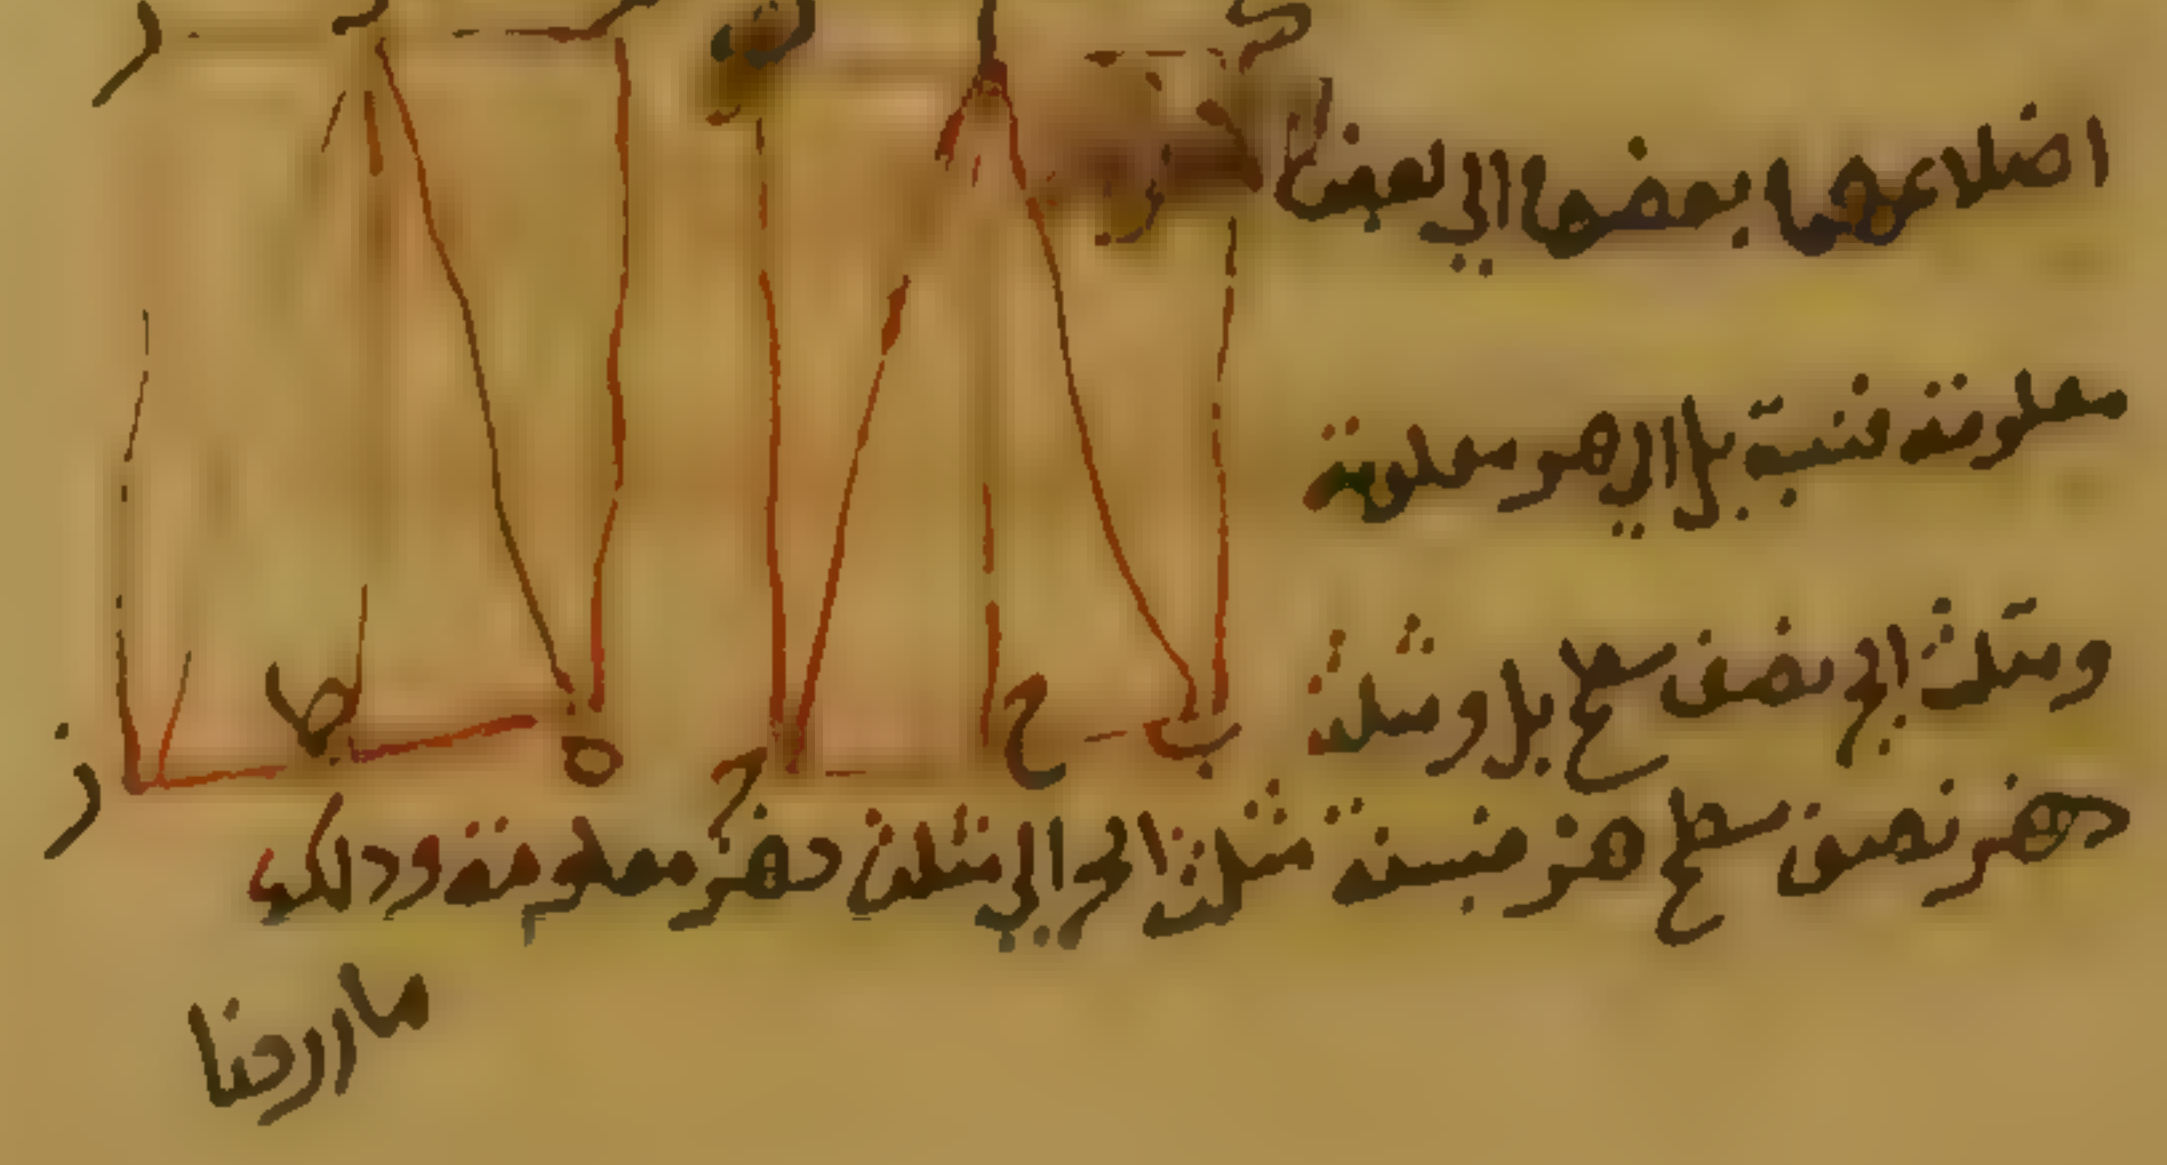 اضلاعهما بعضها الى بعض
معلومة فنسبة بل الى هر معلومة
ومثلث ابج نصف سطح بل ومثلث
دهز نصف سطح هز فنسبة مثلث ابج الى مثلث دهز معلومة وذلك
ما اردنا
ح ط
ب ه ز